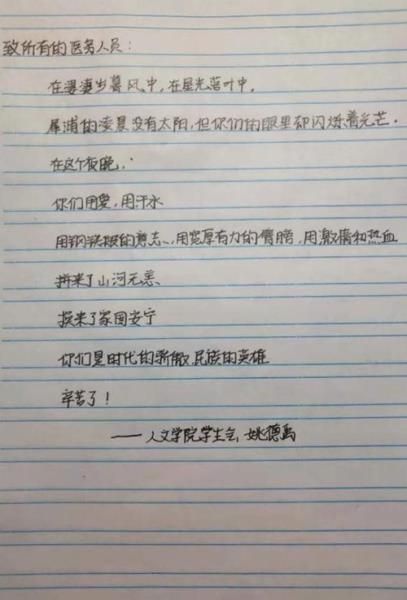 致所有的医务人员：
在婆娑岁暮风中，在星光落叶中。
犀浦的凌晨没有太阳，但你们的眼里却闪烁着光芒。
在这个夜晚，
你们用爱，用汗水
用钢铁般的意志，用宽厚有力的臂膀，用激情和热血
拼来了山河无恙
换来了家国安宁
你们是时代的 民族的英雄
辛苦了！
——人文学院学生会 姚德禹